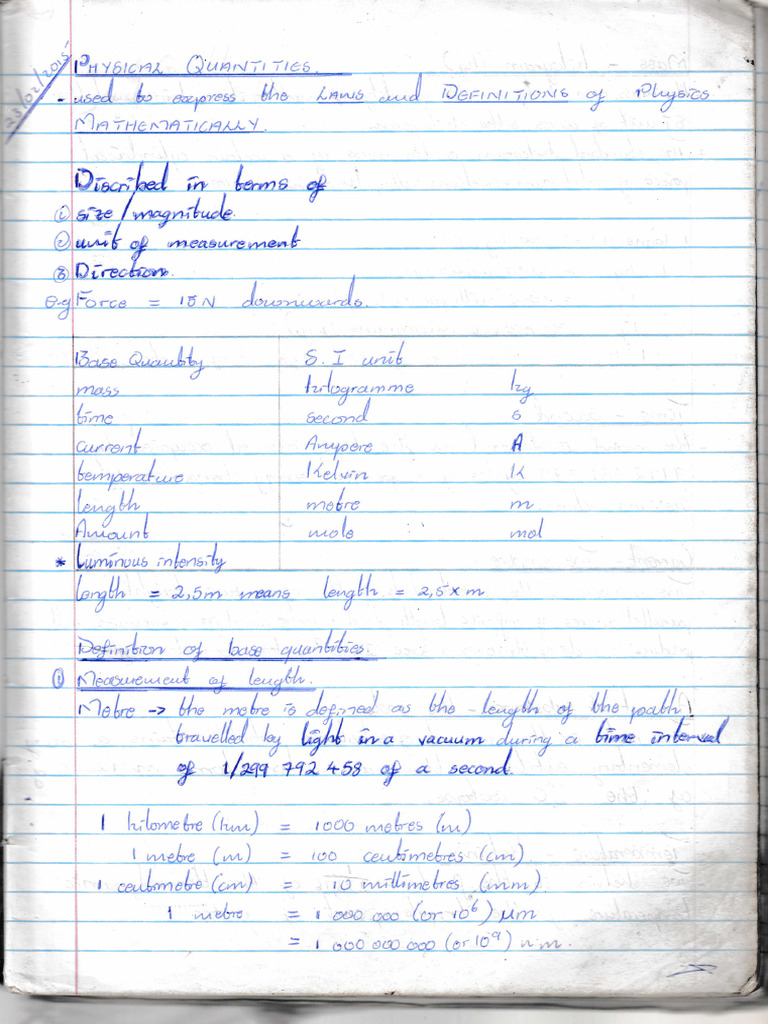 23/02/2015
PHYSICAL QUANTITIES.
- used to express the LAWS and DEFINITIONS of Physics
MATHEMATICALLY.
Discribed in terms of :
① size/magnitude.
② unit of measurement
③ Direction.
e.g Force = 15N downwards.
Base Quantity S.I unit
mass kilogramme kg
time second s
current Ampere A
temperature Kelvin K
length metre m
Amount mole mol
* Luminous intensity
length = 2,5m means length = 2,5 x m
Definition of base quantities.
① Measurement of length.
Metre -> the metre is defined as the length of the path
travelled by light in a vacuum during a time interval
of 1/299 792 458 of a second.
1 kilometre (km) = 1000 metres (m)
1 metre (m) = 100 centimetres (cm)
1 centimetre (cm) = 10 millimetres (mm).
1 metre = 1 000 000 (or 10⁶) µm
= 1 000 000 000 (or 10⁹) nm.